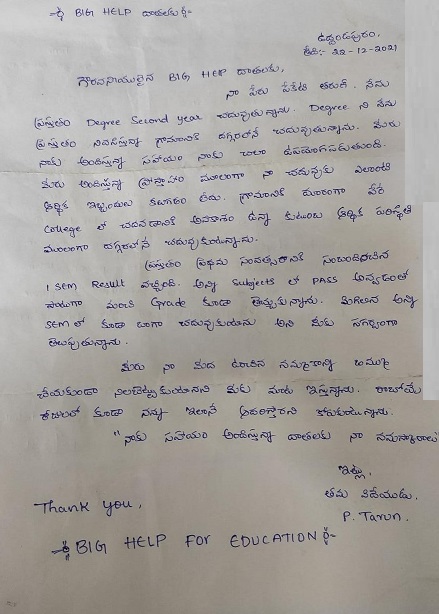 BIG HELP దాతలకు
ఉద్దండపురం,
తేది:- 22-12-2021
గౌరవనీయులైన BIG HELP దాతలకు,
నా పేరు పేకేటి తరుణ్. నేను
ప్రస్తుతం Degree Second year చదువుతున్నాను. Degree ని నేను
ప్రస్తుతం నివసిస్తున్న గ్రామానికి దగ్గరలోనే చదువుతున్నాను. మీరు
నాకు అందిస్తున్న సహాయం నాకు చాలా ఉపయోగపడుతుంది.
మీరు అందిస్తున్న ప్రోత్సాహం మూలంగా నా చదువుకు ఎలాంటి
ఆర్థిక ఇబ్బందులు కలగడం లేదు. గ్రామానికి దూరంగా వేరే
College లో చదవడానికి అవకాశం ఉన్నా కుటుంబ ఆర్థిక పరిస్థితి
మూలంగా దగ్గరలోనే చదువుకుంటున్నాను.
ప్రస్తుతం ప్రథమ సంవత్సరానికి సంబంధించిన
1 SEM Result వచ్చింది. అన్ని Subjects లో PASS అవ్వడంతో
పాటుగా మంచి Grade కూడా తెచ్చుకున్నాను. మిగిలిన అన్ని
SEM లో కూడా బాగా చదువుకుంటాను అని మీకు సగర్వంగా
తెలుపుతున్నాను.
మీరు నా మీద ఉంచిన నమ్మకాన్ని వమ్ము
చేయకుండా నిలబెట్టుకుంటానని మీకు మాట ఇస్తున్నాను. రాబోయే
రోజులలో కూడా నన్ను ఇలానే ఆదరిస్తారని కోరుకుంటున్నాను.
"నాకు సహాయం అందిస్తున్న దాతలకు నా నమస్కారాలు"
ఇట్లు,
తమ విదేయుడు,
P. Tarun.
Thank you,
BIG HELP FOR EDUCATION